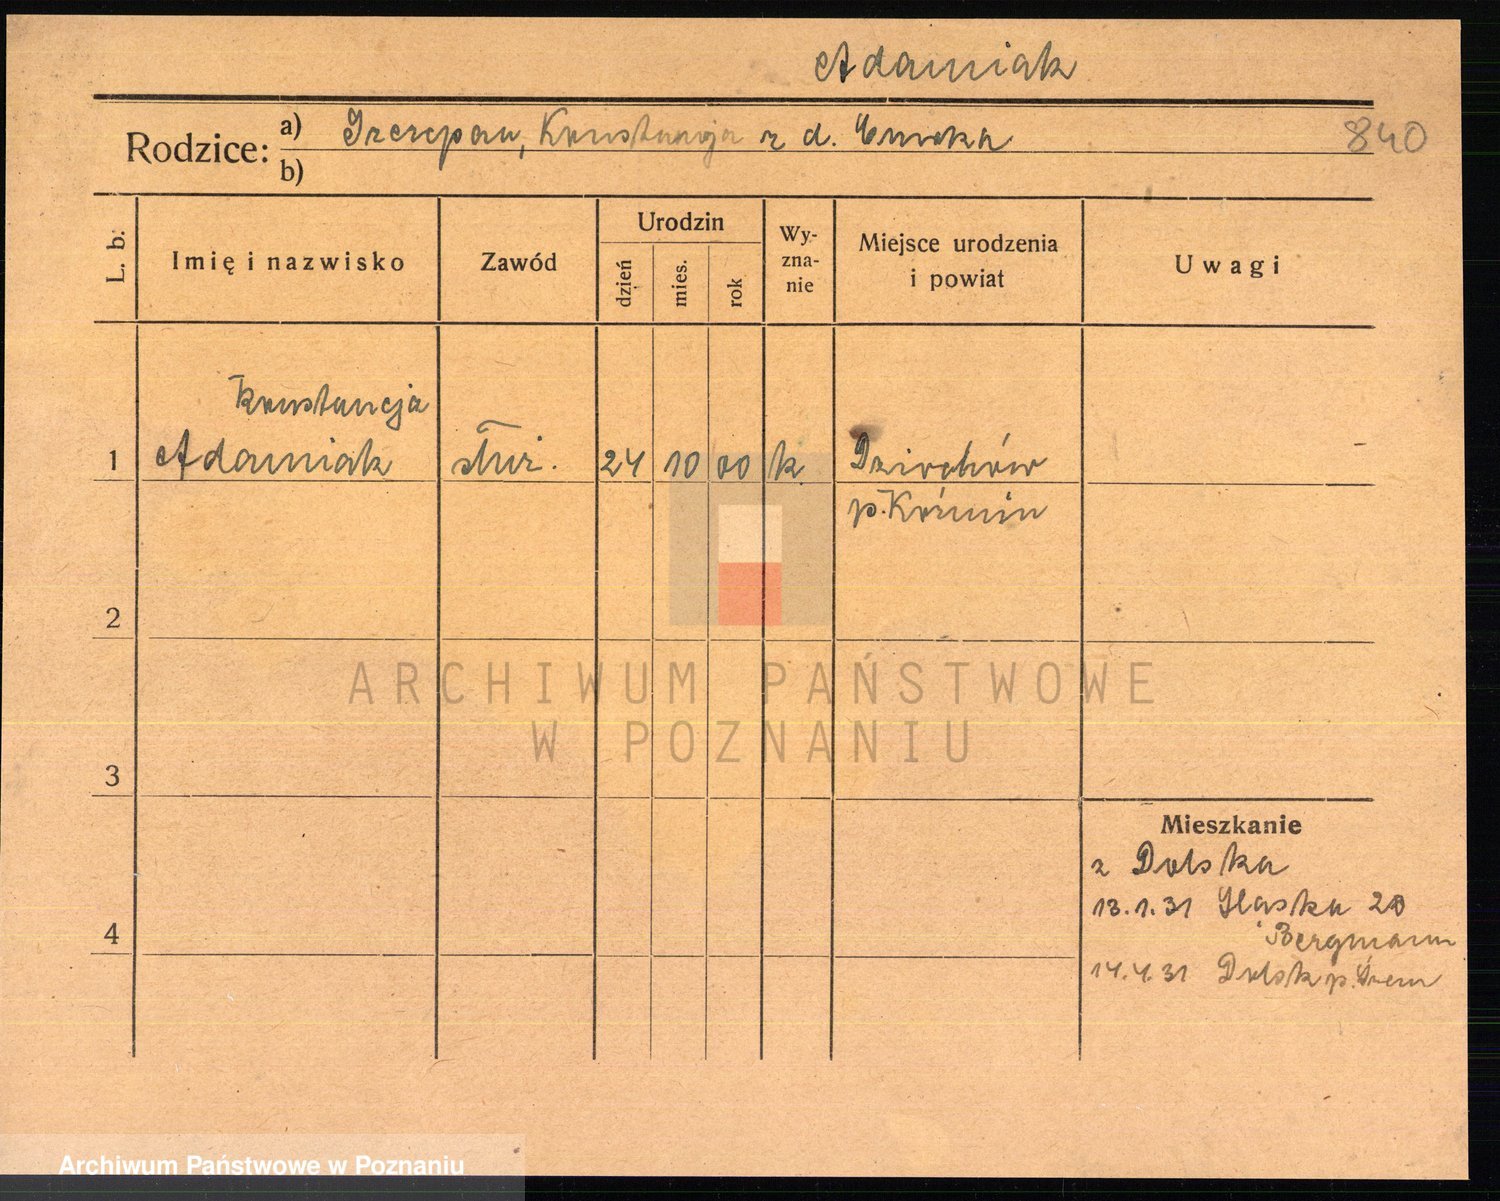 Adamiak
Rodzice: a) Szczepan, Konstancja z d.
840
b)
L. b:
Imię i nazwisko
Zawód
Urodzin
dzień
mies.
rok
Wy-
zna-
nie
Miejsce urodzenia
i powiat
Uwagi
Konstancja
1 Adamiak służ. 24 10 00 k. Dzierchów
p. Koźmin
2
3
4
Mieszkanie
z Dolska
13.1.31 Śląska 20
Bergmann
14.4.31 Dolsk p. Śrem
ARCHIWUM PAŃSTWOWE
W POZNANIU
Archiwum Państwowe w Poznaniu